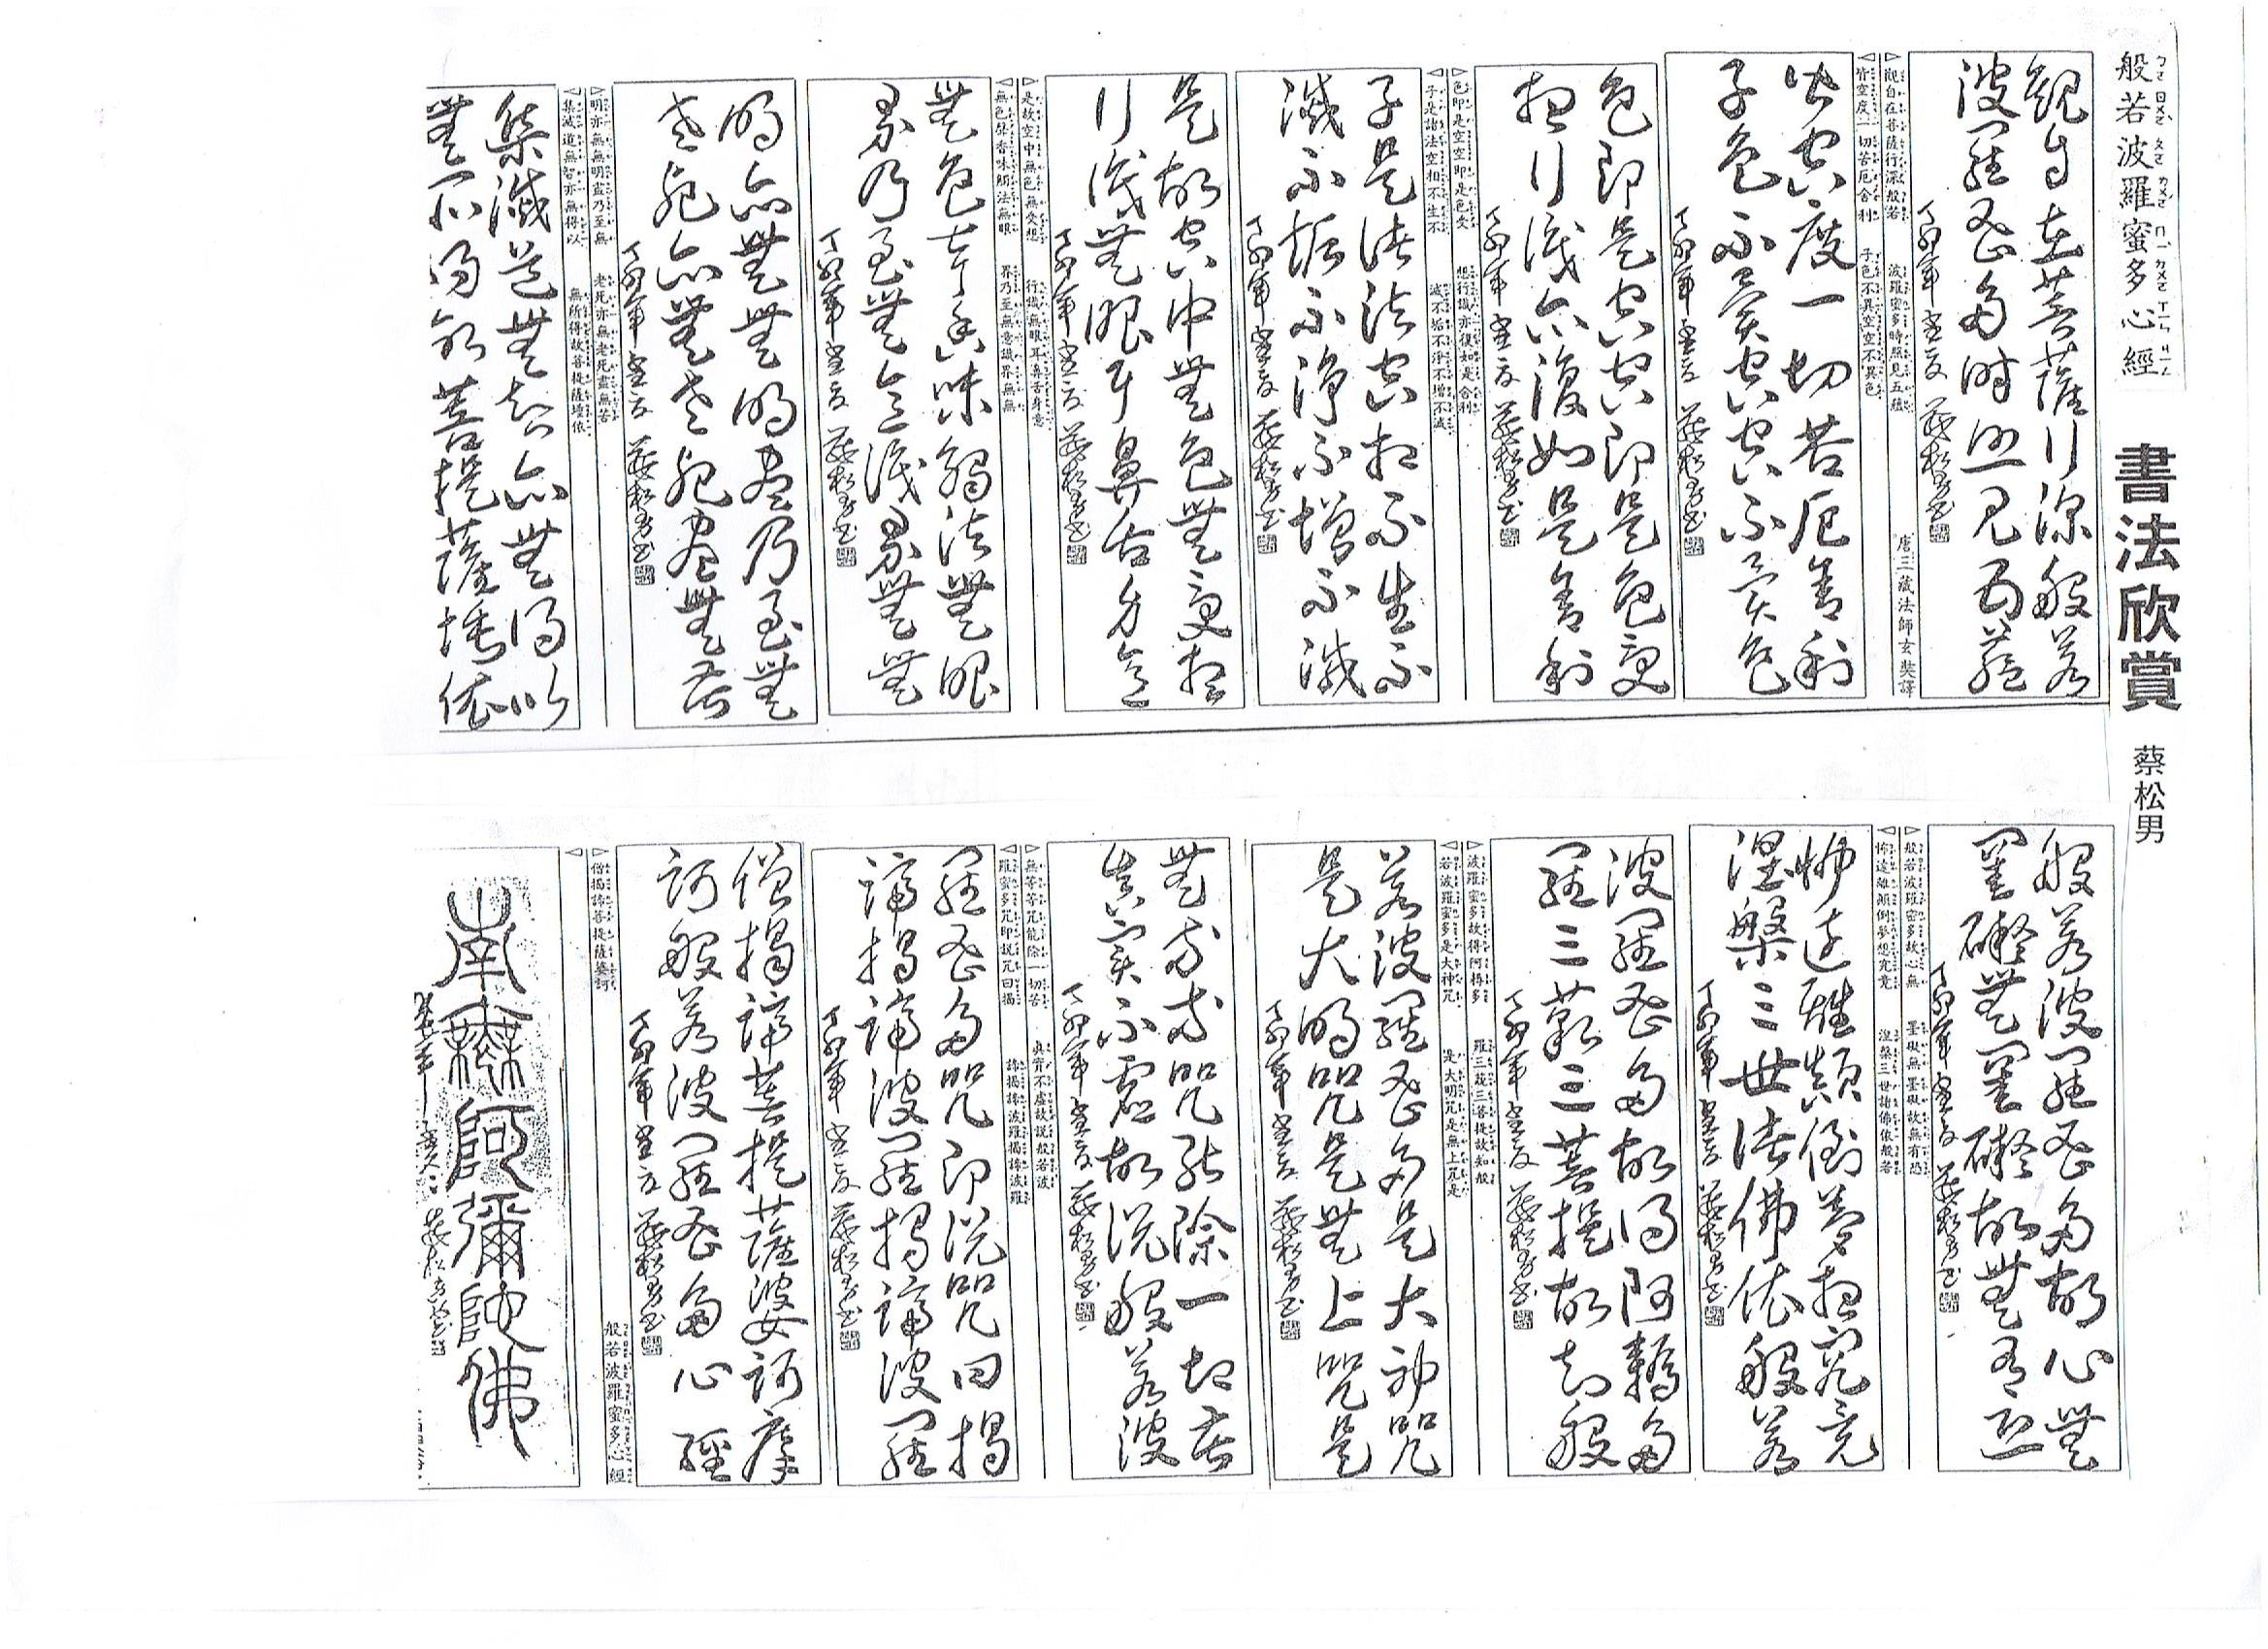 般若波羅蜜多心經 書法欣賞 蔡松男
觀自在菩薩行深般若
波羅蜜多時照見五蘊
丁卯年 蔡松男書
唐三藏法師玄奘譯
觀自在菩薩行深般若 波羅蜜多時照見五蘊
皆空度一切苦厄舍利 子色不異空空不異色
皆空度一切苦厄舍利
子色不異空空不異色
丁卯年 蔡松男書
色即是空空即是色受
想行識亦復如是舍利
丁卯年 蔡松男書
色即是空空即是色受 想行識亦復如是舍利
子是諸法空相不生不 滅不垢不淨不增不減
子是諸法空相不生不
滅不垢不淨不增不減
丁卯年 蔡松男書
是故空中無色無受想
行識無眼耳鼻舌身意
丁卯年 蔡松男書
是故空中無色無受想 行識無眼耳鼻舌身意
無色聲香味觸法無眼 界乃至無意識界無無
無色聲香味觸法無眼
界乃至無意識界無無
丁卯年 蔡松男書
明亦無無明盡乃至無
老死亦無老死盡無苦
丁卯年 蔡松男書
明亦無無明盡乃至無 老死亦無老死盡無苦
集滅道無智亦無得以 無所得故菩提薩埵依
集滅道無智亦無得以
無所得故菩提薩埵依
般若波羅蜜多故心無
罣礙無罣礙故無有恐
丁卯年 蔡松男書
般若波羅密多故心無 罣礙無罣礙故無有恐
怖遠離顛倒夢想究竟 涅槃三世諸佛依般若
怖遠離顛倒夢想究竟
涅槃三世諸佛依般若
丁卯年 蔡松男書
波羅蜜多故得阿耨多
羅三藐三菩提故知般
丁卯年 蔡松男書
波羅蜜多故得阿耨多 羅三藐三菩提故知般
若波羅蜜多是大神咒 是大明咒是無上咒是
若波羅蜜多是大神咒
是大明咒是無上咒是
丁卯年 蔡松男書
無等等咒能除一切苦
真實不虛故說般若波
丁卯年 蔡松男書
無等等咒能除一切苦 真實不虛故說般若波
羅蜜多咒即說咒曰揭 諦揭諦波羅揭諦波羅
羅蜜多咒即說咒曰揭
諦揭諦波羅揭諦波羅
丁卯年 蔡松男書
僧揭諦菩提薩婆訶摩
訶般若波羅蜜多心經
丁卯年 蔡松男書
僧揭諦菩提薩婆訶 般若波羅蜜多心經
南無阿彌陀佛
蔡松男